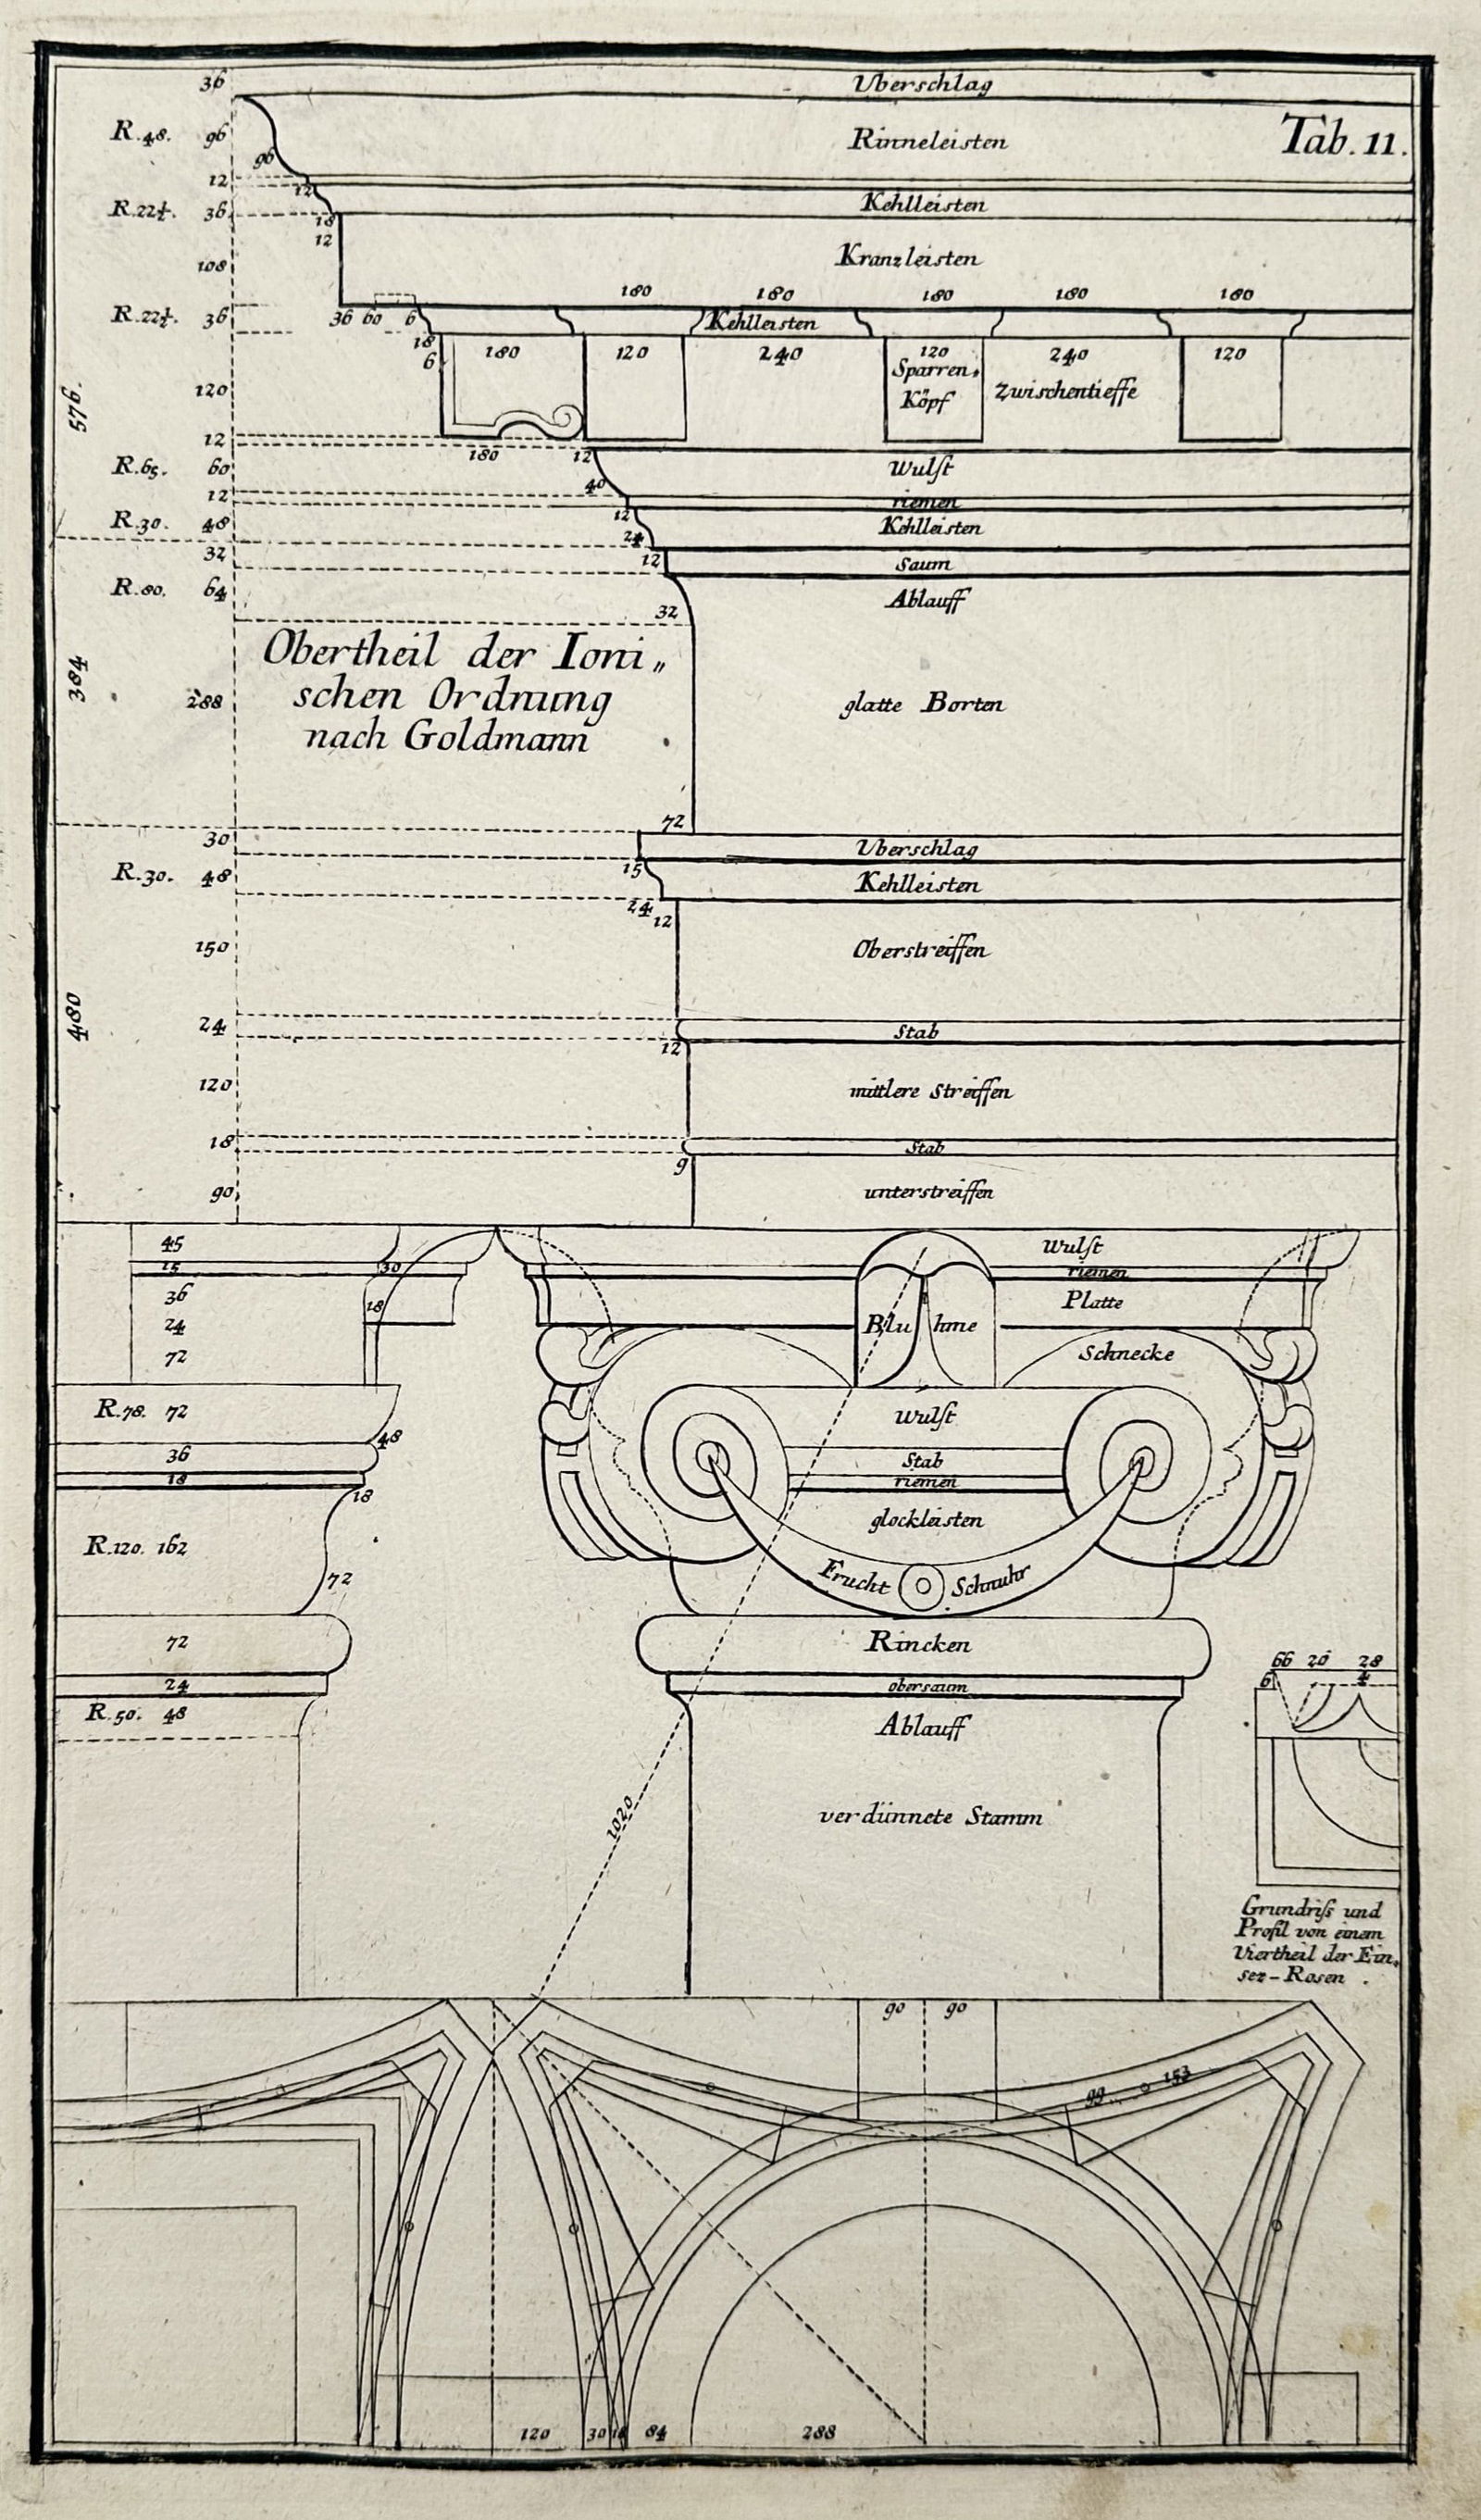 36 Uberschlag
R.48. 96 96 Rinneleisten Tab. 11.
12 12
R.22½. 36 18 Kehlleisten
12
108 Kranzleisten
180 180 180 180 180
R.22½. 36 36 60 6 Kehlleisten
18 180 120 240 120 240 120
6
Sparren=
120 Köpf Zwischentieffe
576.
12 180 12
R.65. 60 40 Wulst
12 12 riemen
R.30. 48 24 Kehlleisten
32 12 Saum
R.80. 64 32 Ablauff
Obertheil der Ioni„
schen Ordnung
nach Goldmann
384
288 glatte Borten
72
30 Uberschlag
15
R.30. 48 Kehlleisten
24 12
150 Oberstreiffen
480
24 Stab
12
120 mittlere Streiffen
18 Stab
9
90 unterstreiffen
45 Wulst
15 30 riemen
36 18 Platte
24 Bluhme
72 Schnecke
R.78. 72 Wulst
48
36 Stab
18 riemen
18 glockleisten
R.120. 162
72 Frucht Schnuhr
72 Rincken
24 obersaum
R.50. 48 Ablauff
66 20 28
6 4
1020 verdünnete Stamm
Grundriss und
Profil von einem
Viertheil der Ein=
sez-Rosen.
90 90
99 153
120 30 18 84 288